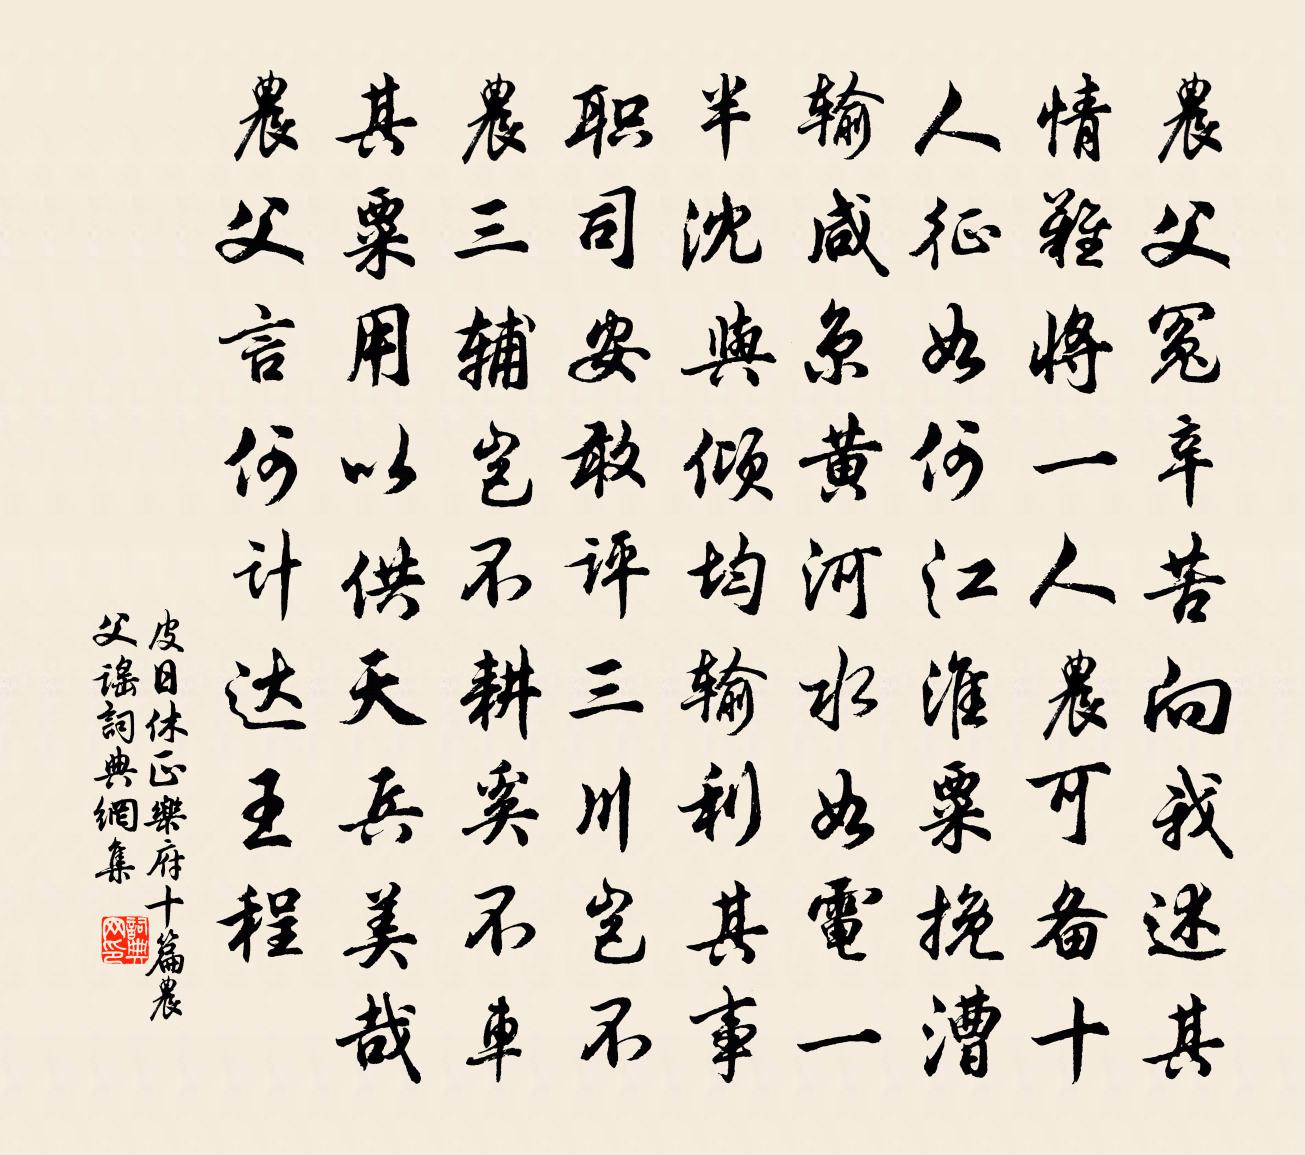 農父冤辛苦向我述其
情難將一人農可备十
人征如何江淮粟挽漕
输咸京黄河水如電一
半沈與倾均输利其事
职司安敢评三川岂不
農三辅岂不耕奚不車
其粟用以供天兵美哉
農父言何计达王程
皮日休正樂府十篇農
父謠詞典網集
詞典
网印